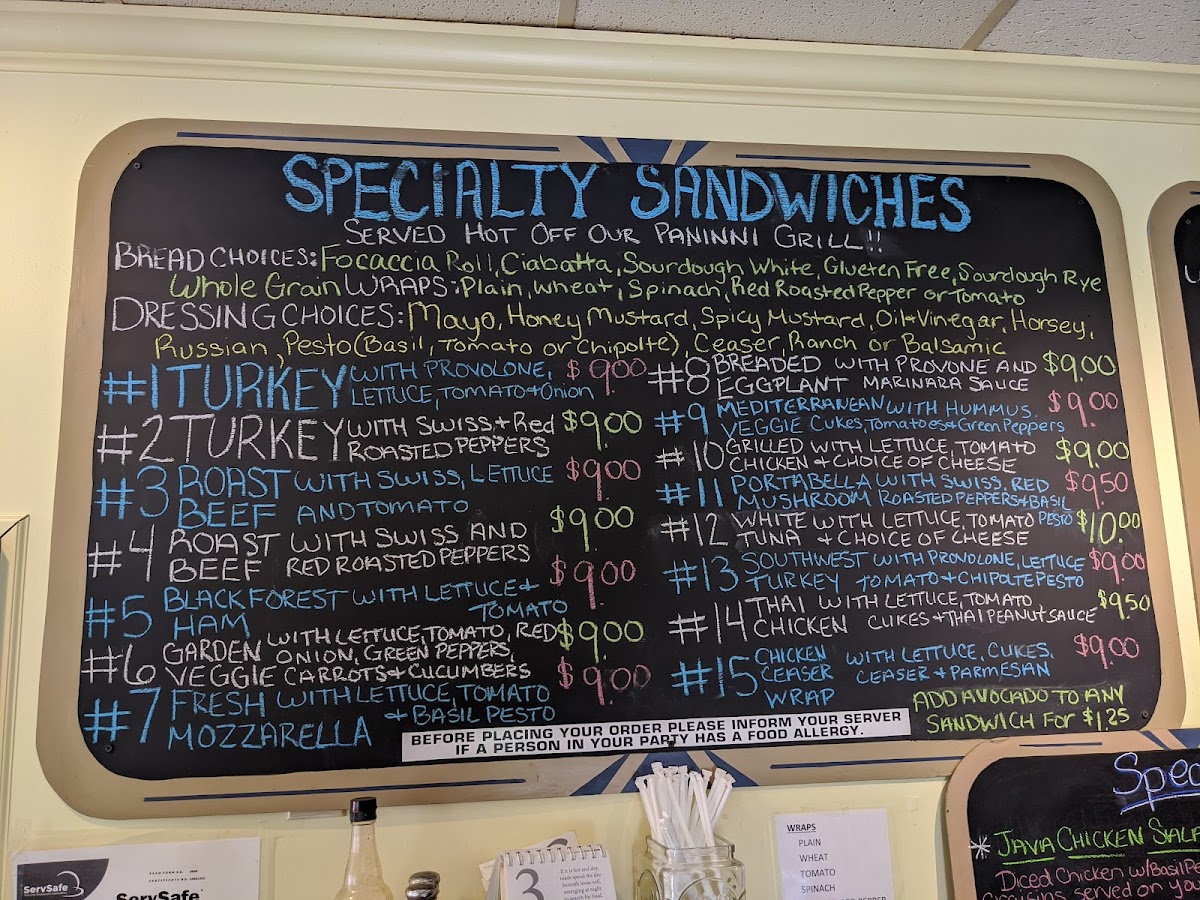 SPECIALTY SANDWICHES
SERVED HOT OFF OUR PANINNI GRILL!!
BREAD CHOICES: Focaccia Roll, Ciabatta, Sourdough White, Glueten Free, Sourdough Rye
Whole Grain WRAPS: Plain, Wheat, Spinach, Red Roasted Pepper or Tomato
DRESSING CHOICES: Mayo, Honey Mustard, Spicy Mustard, Oil+Vinegar, Horsey,
Russian, Pesto (Basil, Tomato or Chipolte), Ceaser, Ranch or Balsamic
#1 TURKEY WITH PROVOLONE, $9.00
LETTUCE, TOMATO + Onion
#2 TURKEY WITH SWISS + Red $9.00
ROASTED PEPPERS
#3 ROAST WITH SWISS, LETTUCE $9.00
BEEF AND TOMATO
#4 ROAST WITH SWISS AND $9.00
BEEF RED ROASTED PEPPERS
#5 BLACK FOREST WITH LETTUCE + $9.00
HAM TOMATO
#6 GARDEN WITH LETTUCE, TOMATO, RED $9.00
ONION, GREEN PEPPERS,
VEGGIE CARROTS + CUCUMBERS
#7 FRESH WITH LETTUCE, TOMATO $9.00
MOZZARELLA + BASIL PESTO
#8 BREADED WITH PROVONE AND $9.00
EGGPLANT MARINARA SAUCE
#9 MEDITERRANEAN WITH HUMMUS, $9.00
VEGGIE Cukes, Tomatoes + Green Peppers
#10 GRILLED WITH LETTUCE, TOMATO $9.00
CHICKEN + CHOICE OF CHEESE
#11 PORTABELLA WITH SWISS, RED $9.50
MUSHROOM ROASTED PEPPERS + BASIL
PESTO
#12 WHITE WITH LETTUCE, TOMATO $10.00
TUNA + CHOICE OF CHEESE
#13 SOUTHWEST WITH PROVOLONE, LETTUCE $9.00
TURKEY TOMATO + CHIPOLTE PESTO
#14 THAI WITH LETTUCE, TOMATO $9.50
CHICKEN CUKES + THAI PEANUT SAUCE
#15 CHICKEN WITH LETTUCE, CUKES, $9.00
CEASER CEASER + PARMESAN
WRAP
ADD AVOCADO TO ANY
SANDWICH FOR $1.25
BEFORE PLACING YOUR ORDER PLEASE INFORM YOUR SERVER
IF A PERSON IN YOUR PARTY HAS A FOOD ALLERGY.
ServSafe
ServSafe
3
WRAPS
PLAIN
WHEAT
TOMATO
SPINACH
Spec
* JAVA CHICKEN SALA
Diced Chicken w/Basil Pe